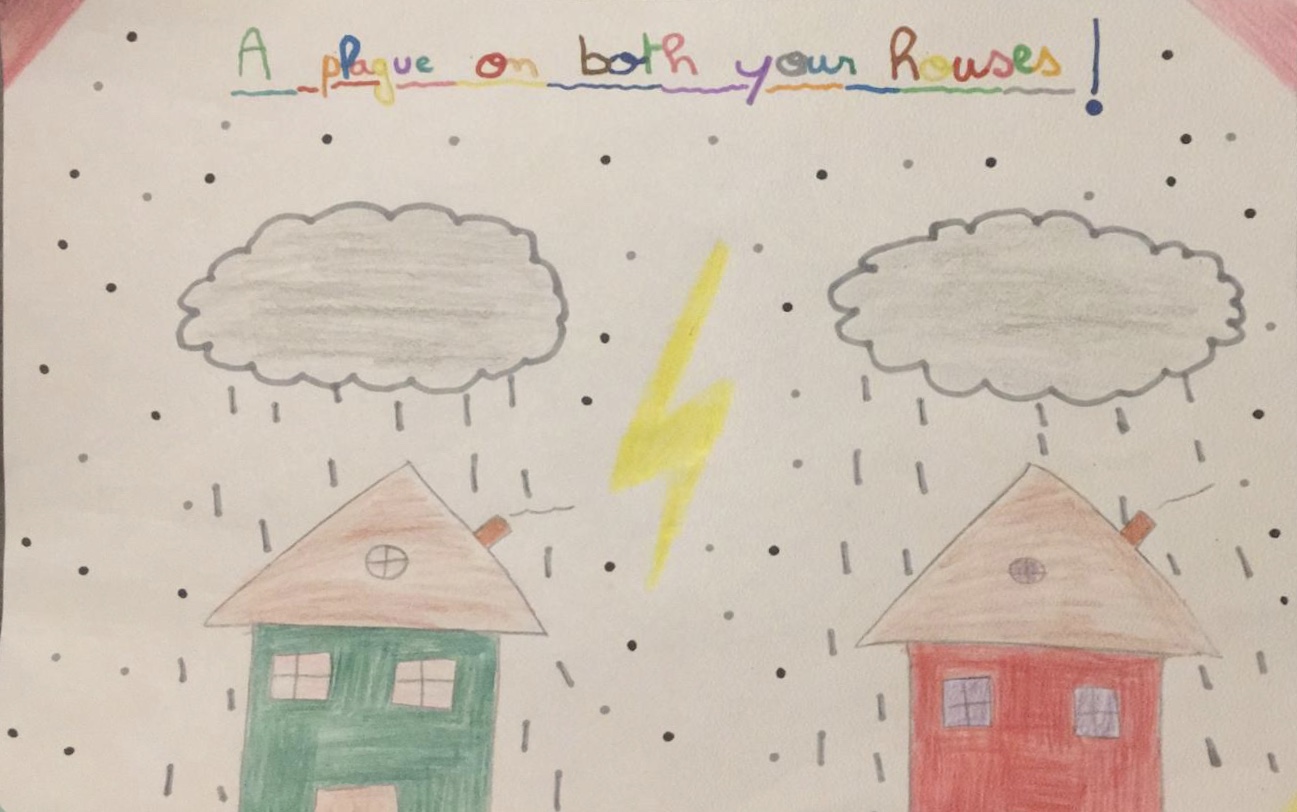 A plague on both your houses!